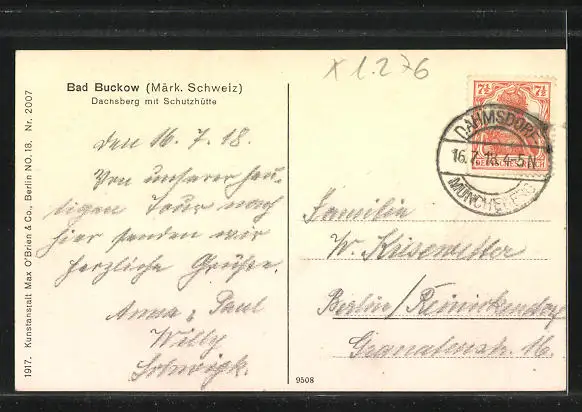 Bad Buckow (Märk. Schweiz)
Dachsberg mit Schutzhütte
den 16. 7. 18.
Von unserer heu-
tigen Tour nach
hier senden wir
herzliche Grüße.
Anna, Paul
Willy
X 1.276
7½ 7½
DEUTSCHES REICH
DAHMSDORF
16.7.18. 4-5 N
MÜNCHEBERG
Familie
W. Kiesewetter
Berlin/Reinickendorf
Granatenstr. 16.
9508
1917. Kunstanstalt Max O'Brien & Co., Berlin NO.18. Nr. 2007